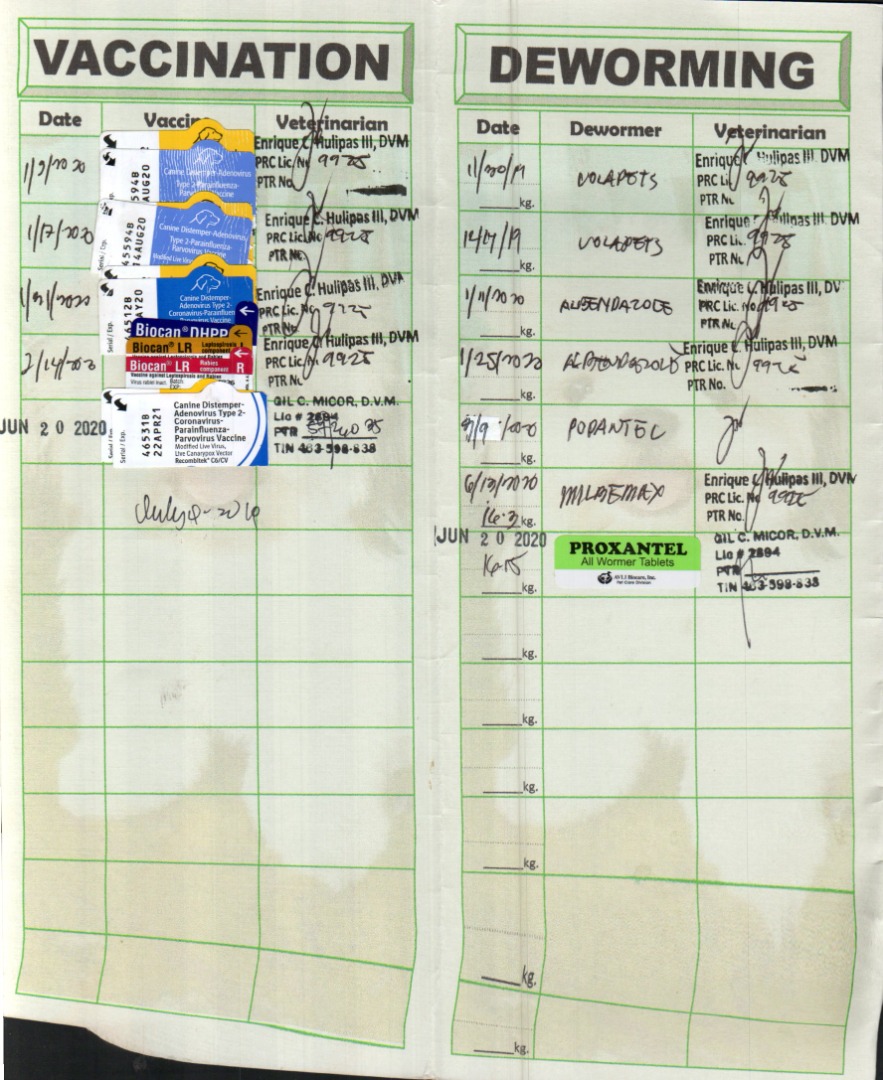 VACCINATION
Date Vaccin Veterinarian
594B
AUG20
Canine Distemper-Adenovirus
Type 2-Parainfluenza-
Parvovirus Vaccine
Enrique C. Hulipas III, DVM
PRC Lic. No 9925
PTR No.
1/17/2020
45594B
14AUG20
Canine Distemper-Adenovirus
Type 2-Parainfluenza-
Parvovirus Vaccine
Modified Live Virus
Enrique C. Hulipas III, DVM
PRC Lic. No 9925
PTR No.
6512B
AY20
Serial / Exp.
Canine Distemper-
Adenovirus Type 2-
Coronavirus-Parainfluen
Enrique C. Hulipas III, DVM
PRC Lic. No
PTR No.
Biocan® DHPP
Biocan® LR Leptospirosis component
Biocan® LR Rabies component R
Vaccine against Leptospirosis and Rabies
Enrique C. Hulipas III, DVM
PRC Lic. No 9925
PTR No.
JUN 20 2020
Serial / Exp.
46531B
22APR21
Canine Distemper-
Adenovirus Type 2-
Coronavirus-
Parainfluenza-
Parvovirus Vaccine
Modified Live Virus,
Live Canarypox Vector
Recombitek® C6/CV
GIL C. MICOR, D.V.M.
Lic # 2694
PTR
TIN 463-598-838
DEWORMING
Date Dewormer Veterinarian
11/30/19 VOLAPETS
kg.
Enrique C. Hulipas III, DVM
PRC Lic. 9925
PTR No.
VOLAPETS
kg.
Enrique C. Hulipas III, DVM
PRC Lic. 9925
PTR No.
1/11/2020 ALBENDAZOLE
kg.
Enrique C. Hulipas III, DV
PRC Lic. No. 9925
PTR No.
1/25/2020
kg.
Enrique C. Hulipas III, DVM
PRC Lic. No
PTR No.
kg.
6/13/2020 MILBEMAX
16.3 kg.
Enrique C. Hulipas III, DVM
PRC Lic. No
PTR No.
JUN 20 2020
kg.
PROXANTEL
All Wormer Tablets
GIL C. MICOR, D.V.M.
Lic # 2694
PTR
TIN 463-598-838
kg.
kg.
kg.
kg.
kg.
kg.